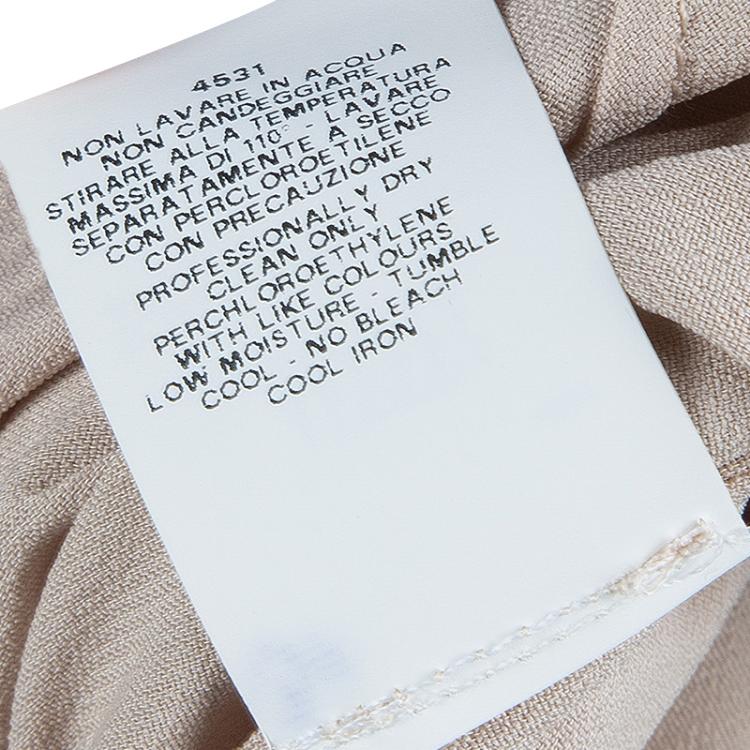 4531
NON LAVARE IN ACQUA
NON CANDEGGIARE
STIRARE ALLA TEMPERATURA
MASSIMA DI 110° - LAVARE
SEPARATAMENTE A SECCO
CON PERCLOROETILENE
CON PRECAUZIONE
PROFESSIONALLY DRY
CLEAN ONLY
PERCHLOROETHYLENE
WITH LIKE COLOURS
LOW MOISTURE - TUMBLE
COOL - NO BLEACH
COOL IRON